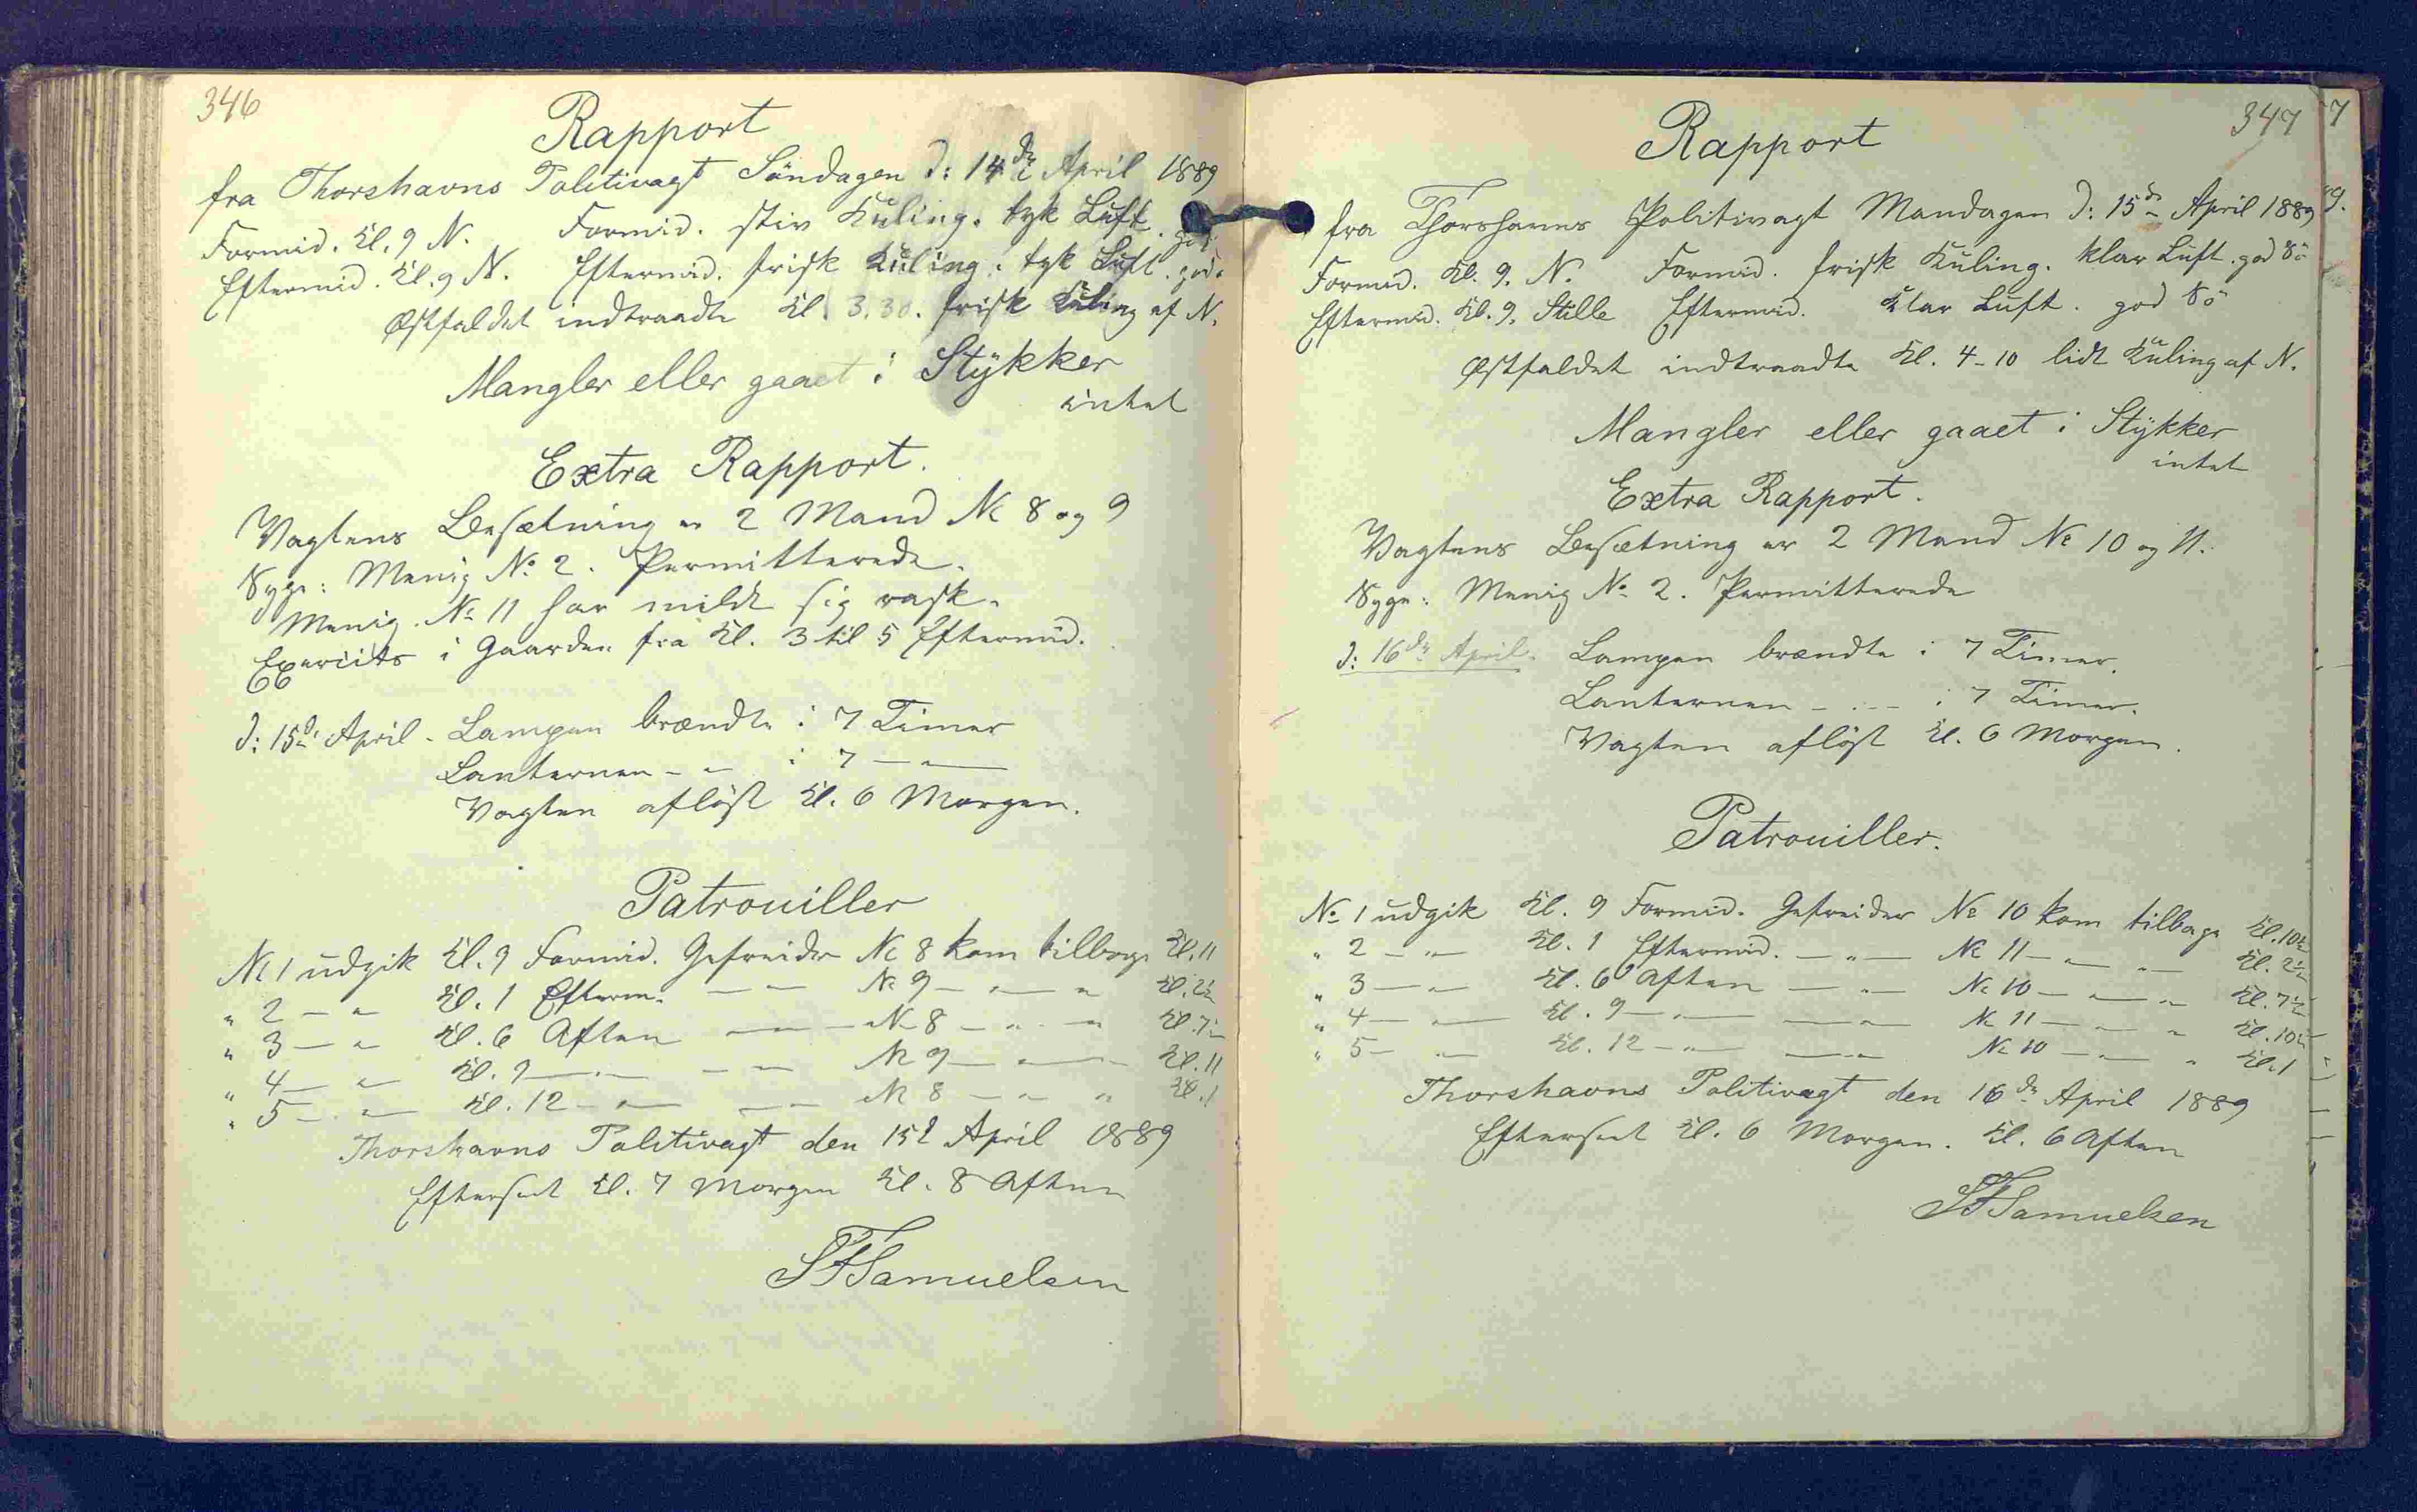 346
Rapport
fra Thorshavns Politivagt Söndagen d: 14de April 1889
Formid. Kl. 9 N. Formid. stiv Kuling. tyk Luft. god
Eftermid. Kl. 9 N. Eftermid. frisk Kuling. tyk Luft. god.
Østfaldet indtraadte Kl 3.30. frisk Kuling af N.
Mangler eller gaaet i Stykker
intet
Extra Rapport.
Vagtens Besætning er 2 Mand № 8 og 9
Syge: Menig № 2. Permitterede.
Menig № 11 har mildt sig rask.
Exercits i Gaarden fra Kl. 3 til 5 Eftermid.
d: 15de April. Lampen brændte i 7 Timer
Lanternen - " - i 7 - " -
Vagten aflöst Kl. 6 Morgen.
Patrouiller
№ 1 udgik Kl. 9 Formid. Gefreider № 8 kom tilbage Kl. 11
" 2 - " Kl. 1 Efterm. - " - № 9 - " - " Kl. 2½
" 3 - " Kl. 6 Aften - " - № 8 - " - " Kl. 7½
" 4 - " Kl. 9 - " - - " - № 9 - " - Kl. 11
" 5 - " - Kl. 12 - " - - " - № 8 - " - " Kl. 1
Thorshavns Politivagt den 15d April 1889
Efterseet Kl. 7 Morgen Kl. 8 Aften
SFSamuelsen
347
Rapport
fra Thorshavns Politivagt Mandagen d: 15de April 1889
Formid. Kl. 9. N. Formid. frisk Kuling. klar Luft. god Sö
Eftermid. Kl. 9. Stille Eftermid. Klar Luft. god Sö
Østfaldet indtraadte Kl. 4-10 lidt Kuling af N.
Mangler eller gaaet i Stykker
intet
Extra Rapport.
Vagtens Besætning er 2 Mand № 10 og 11.
Syge: Menig № 2. Permitterede
d: 16de April. Lampen brændte i 7 Timer.
Lanternen - " - i 7 Timer.
Vagten aflöst Kl. 6 Morgen.
Patrouiller.
№ 1 udgik Kl. 9 Formid. Gefreider № 10 kom tilbage Kl. 10½
" 2 - " - Kl. 1 Eftermid. - " - № 11 - " - " - Kl. 2½
" 3 - " - Kl. 6 Aften - " - № 10 - " - " Kl. 7½
" 4 - " - Kl. 9 - " - - " - № 11 - " - " Kl. 10½
" 5 - " - Kl. 12 - " - - " - № 10 - " - " Kl. 1
Thorshavns Politivagt den 16de April 1889
Efterseet Kl. 6 Morgen. Kl. 6 Aften
SFSamuelsen